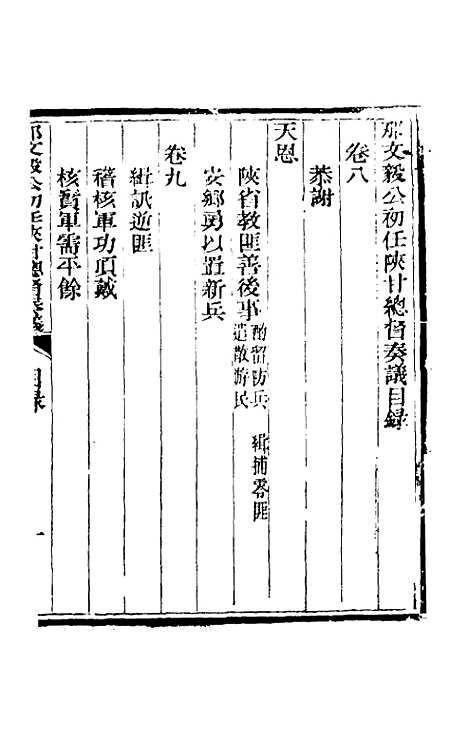 那文毅公初任陝甘總督奏議目録
卷八
恭謝
天恩
陝省教匪善後事 酌留防兵 緝捕零匪
遣散游民
安鄉勇以置新兵
卷九
緝訊逆匪
稽核軍功頂戴
核實軍需平餘
那文毅公初任陝甘總督奏議 目録 一